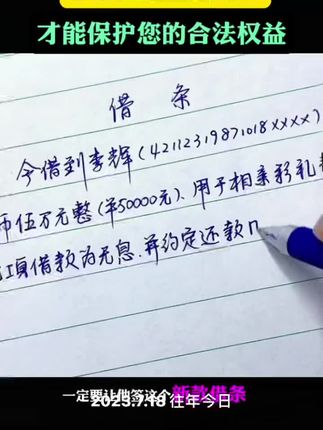 才能保护您的合法权益
借条
今借到李辉(42112319871018xxxx)
币伍万元整(¥50000元)、用于相亲彩礼
项借款为无息.并约定还款
一定要让他签这个新款借条
2023.7.18 往年今日